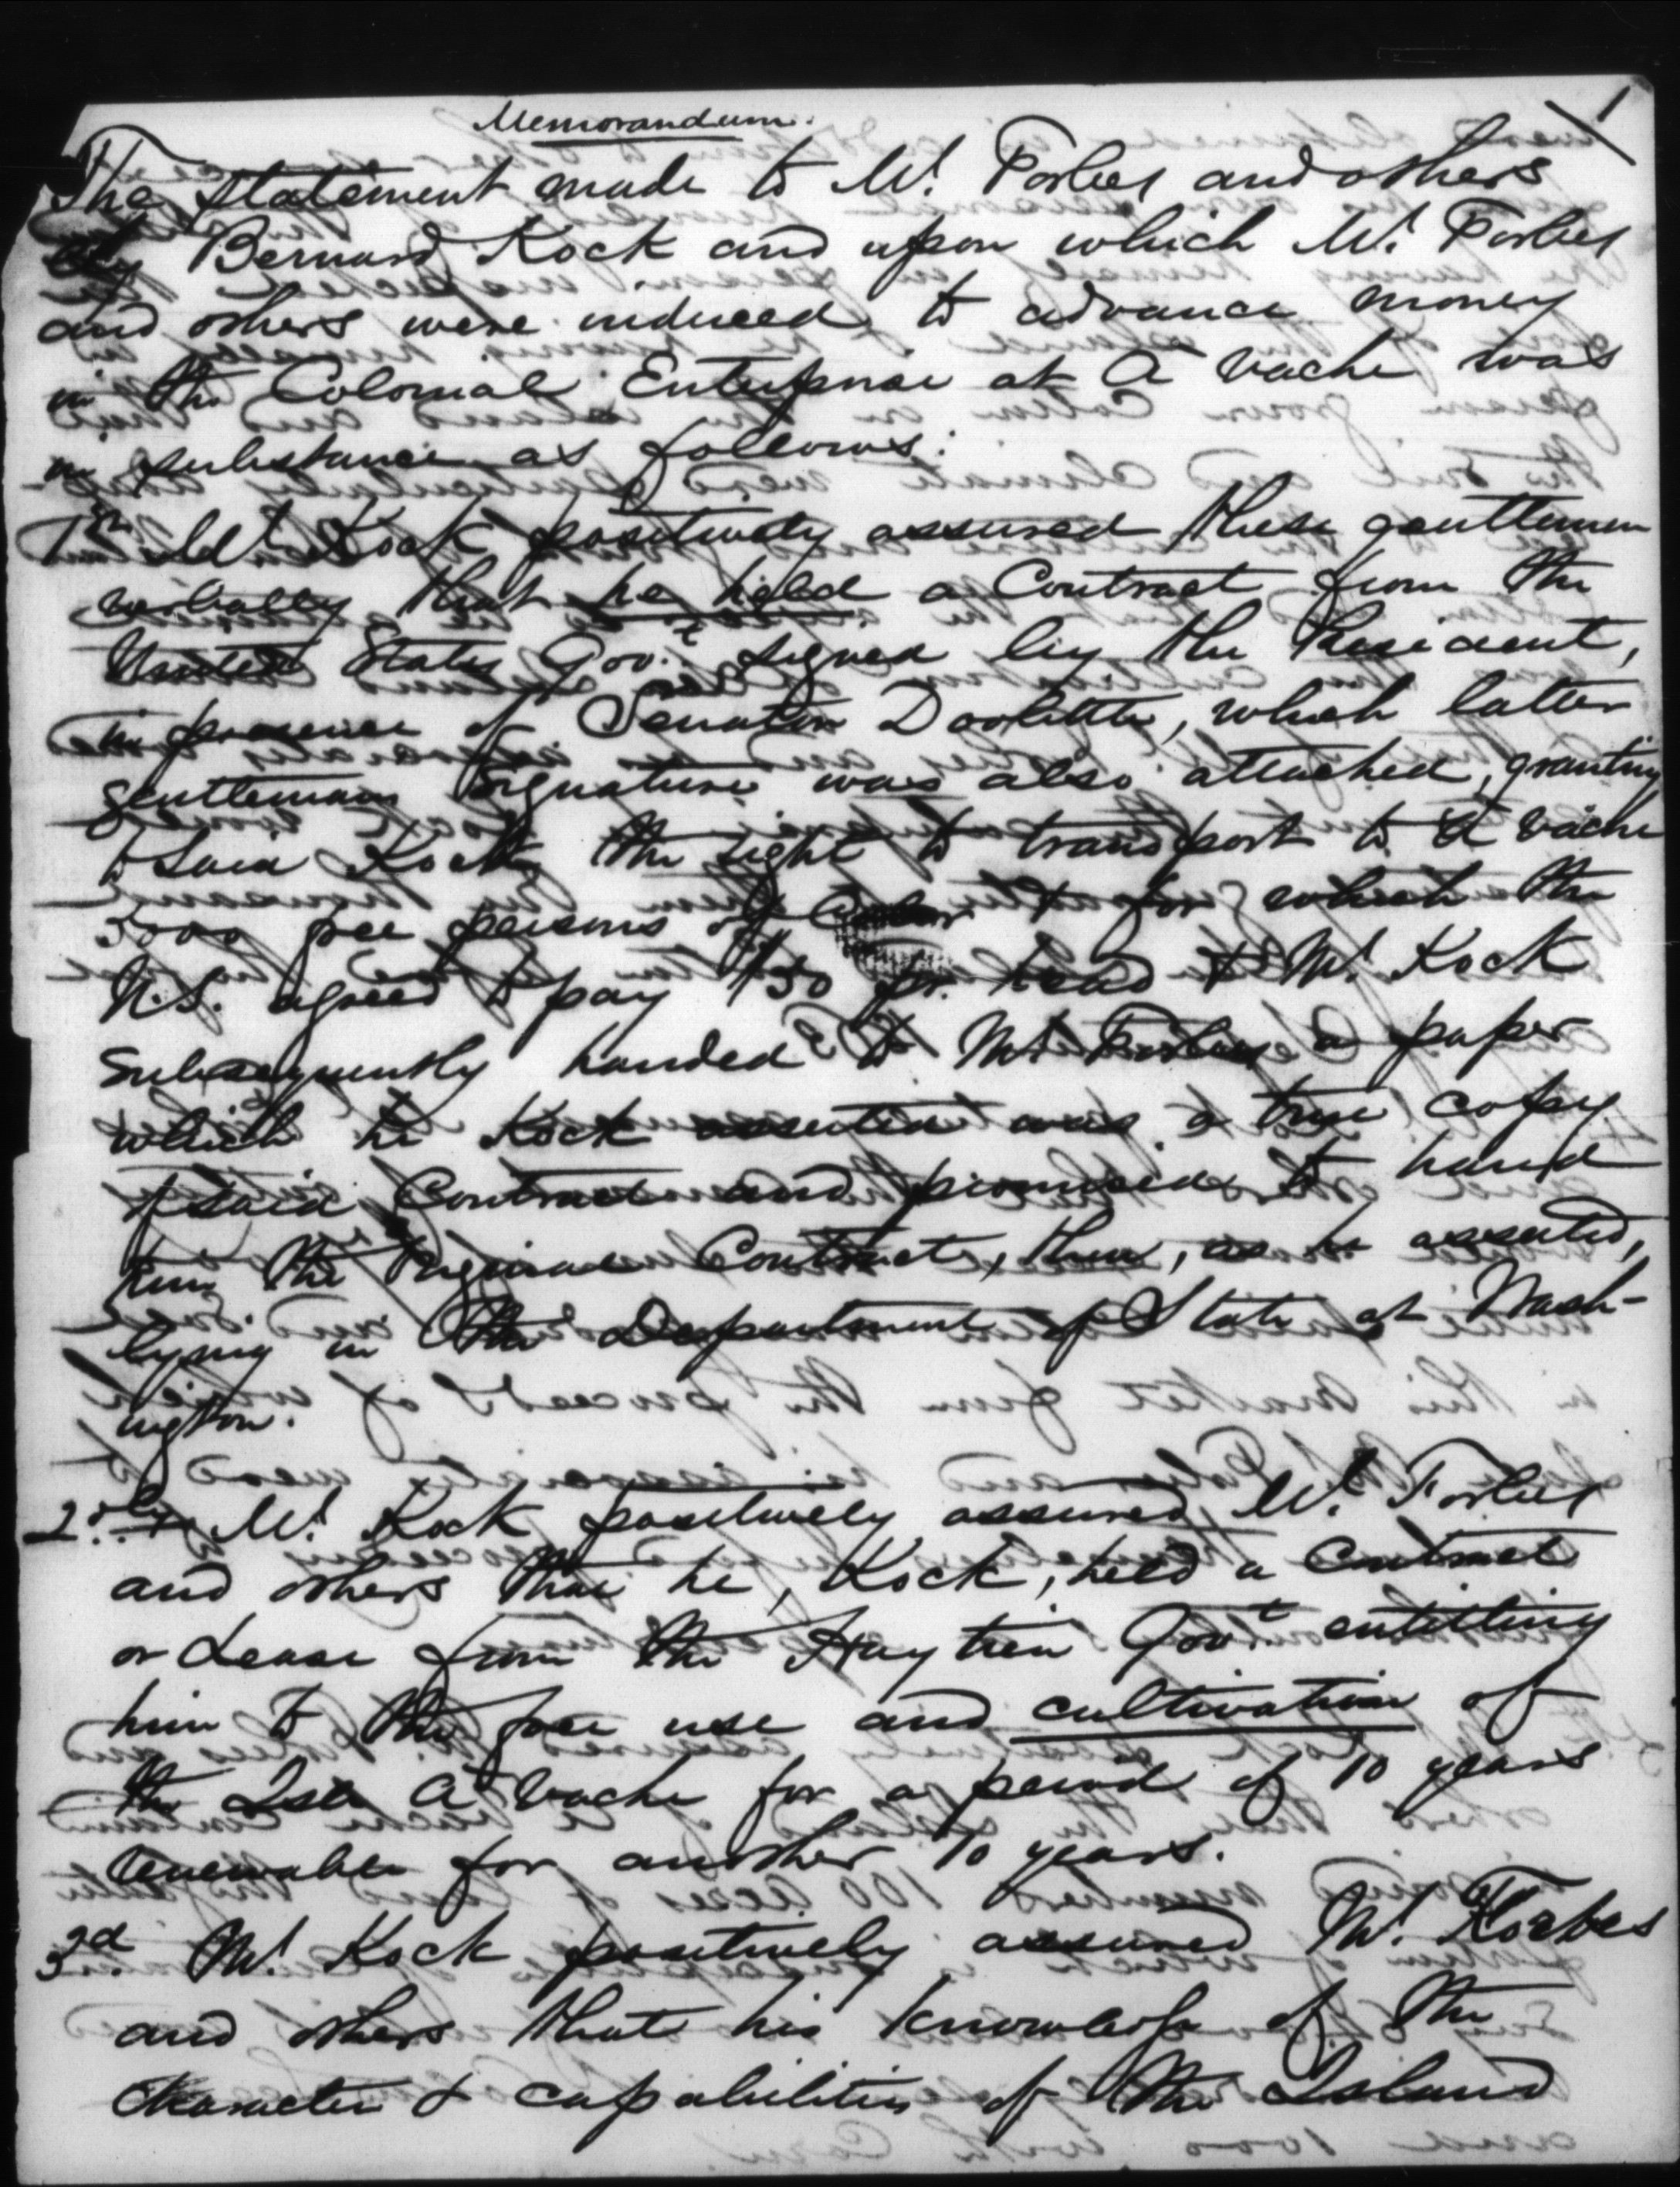 1
Memorandum.
The statement made to Mr. Forbes and others
by Bernard Kock and upon which Mr. Forbes
and others were induced to advance money
in the Colonial Enterprise at A Vache was
in substance as follows:
1st Mr. Kock positively assured these gentlemen
verbally that he held a Contract from the
United States Govt. signed by the President,
in presence of Senator Doolittle, which latter
gentlemans signature was also attached, granting
to said Kock the right to transport to A Vache
5000 free persons of Color & for which the
U.S. agreed to pay $50 pr. head & Mr. Kock
subsequently handed to Mr. Forbes a paper
which he Kock asserted was a true copy
of said Contract and promised to hand
him the original Contract, then, as he asserted,
lying in the Department of State at Wash-
ington.
2dly Mr. Kock positively assured Mr. Forbes
and others that he, Kock, held a Contract
or Lease from the Haytien Govt. entitling
him to the free use and cultivation of
the Isle A Vache for a period of 10 years
renewable for another 10 years.
3d. Mr. Kock positively assured Mr. Forbes
and others that his knowledge of the
character & capabilities of the Island